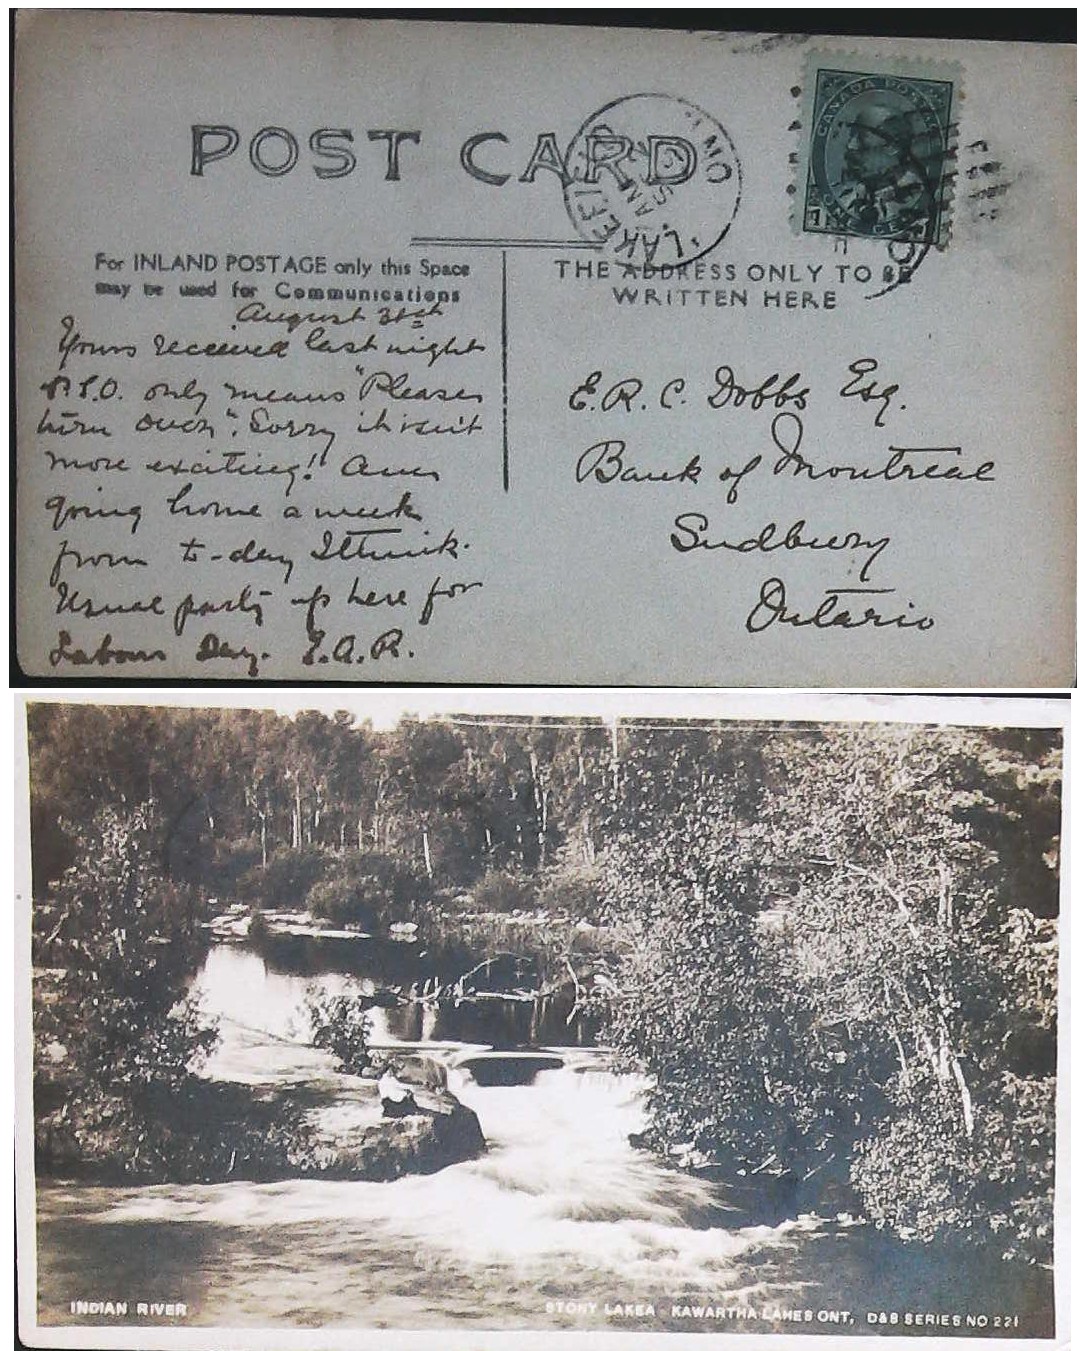 POST CARD
LAKEFIEL
AM
CANADA POSTAGE
1
ONE CENT
For INLAND POSTAGE only this Space
may be used for Communications
THE ADDRESS ONLY TO BE
WRITTEN HERE
August 31st
Yours received last night
P.T.O. only means "Please
turn over". Sorry it isn't
more exciting! Am
going home a week
from to-day I think.
Usual party up here for
Labour Day. E.A.R.
E. R. C. Dobbs Esq.
Bank of Montreal
Sudbury
Ontario
INDIAN RIVER
STONY LAKEA KAWARTHA LAKES ONT, D&B SERIES NO 221